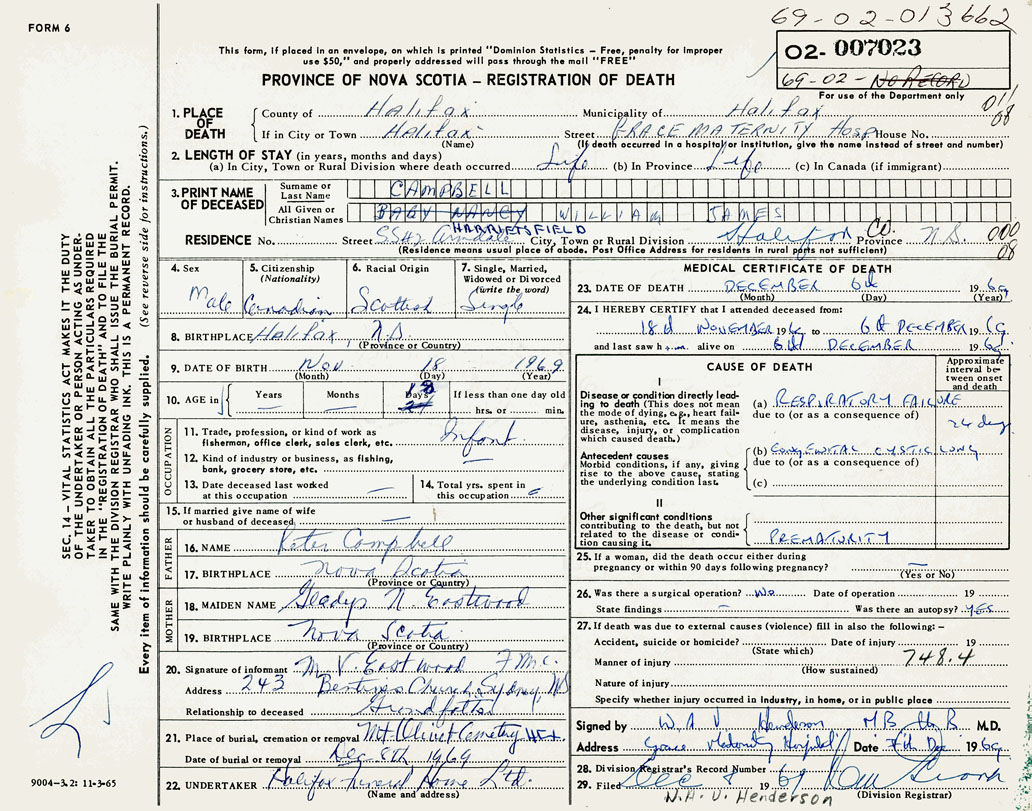 69-02-013662
FORM 6
This form, if placed in an envelope, on which is printed "Dominion Statistics – Free, penalty for improper
use $50," and properly addressed will pass through the mail "FREE"
02- 007023
PROVINCE OF NOVA SCOTIA – REGISTRATION OF DEATH
69-02- NO RECORD
For use of the Department only
011
08
1. PLACE OF DEATH
County of Halifax Municipality of Halifax
If in City or Town Halifax Street GRACE MATERNITY HOSP House No.
(Name) (If death occurred in a hospital or institution, give the name instead of street and number)
2. LENGTH OF STAY (in years, months and days)
(a) In City, Town or Rural Division where death occurred Life (b) In Province Life (c) In Canada (if immigrant)
3. PRINT NAME OF DECEASED
Surname or Last Name CAMPBELL
All Given or Christian Names BABY NANCY WILLIAM JAMES
HARRIETSFIELD
RESIDENCE No. Street SS#2 Armdale City, Town or Rural Division Halifax Co. Province N.S. 000
(Residence means usual place of abode. Post Office Address for residents in rural parts not sufficient) 08
4. Sex Male
5. Citizenship (Nationality) Canadian
6. Racial Origin Scottish
7. Single, Married, Widowed or Divorced (write the word) Single
8. BIRTHPLACE Halifax, N.S.
(Province or Country)
9. DATE OF BIRTH Nov 18 1969
(Month) (Day) (Year)
10. AGE in Years Months Days 18 If less than one day old
hrs. or min.
OCCUPATION
11. Trade, profession, or kind of work as
fisherman, office clerk, sales clerk, etc. Infant
12. Kind of industry or business, as fishing,
bank, grocery store, etc.
13. Date deceased last worked
at this occupation
14. Total yrs. spent in
this occupation
15. If married give name of wife
or husband of deceased
FATHER
16. NAME Peter Campbell
17. BIRTHPLACE Nova Scotia
(Province or Country)
MOTHER
18. MAIDEN NAME Gladys N. Eastwood
19. BIRTHPLACE Nova Scotia
(Province or Country)
20. Signature of informant M. V. Eastwood
Address 243 Church, Sydney, NS
Relationship to deceased Grandfather
21. Place of burial, cremation or removal Mt Olivet Cemetery HFX
Date of burial or removal Dec 8th 1969
22. UNDERTAKER Halifax Funeral Home Ltd.
(Name and address)
MEDICAL CERTIFICATE OF DEATH
23. DATE OF DEATH DECEMBER 6th 1969
(Month) (Day) (Year)
24. I HEREBY CERTIFY that I attended deceased from:
18th NOVEMBER 1969 to 6th DECEMBER 1969
and last saw him alive on 6th DECEMBER 1969
CAUSE OF DEATH
Approximate interval between onset and death
I
Disease or condition directly leading to death (This does not mean the mode of dying, e.g., heart failure, asthenia, etc. It means the disease, injury, or complication which caused death.)
(a) RESPIRATORY FAILURE
due to (or as a consequence of)
Antecedent causes
Morbid conditions, if any, giving rise to the above cause, stating the underlying condition last.
(b) CONGENITAL CYSTIC LUNG
due to (or as a consequence of)
(c)
II
Other significant conditions contributing to the death, but not related to the disease or condition causing it.
PREMATURITY
25. If a woman, did the death occur either during
pregnancy or within 90 days following pregnancy?
(Yes or No)
26. Was there a surgical operation? No Date of operation 19
State findings Was there an autopsy? YES
27. If death was due to external causes (violence) fill in also the following: –
Accident, suicide or homicide? Date of injury 19
(State which)
Manner of injury 748.4
(How sustained)
Nature of injury
Specify whether injury occurred in Industry, in home, or in public place
Signed by W. A. V Henderson M.B. Ch.B. M.D.
Address Grace Maternity Hospital Date 7th Dec 1969
28. Division Registrar's Record Number
29. Filed Dec 8 1969
(Division Registrar)
W.A.V. Henderson
SEC. 14 – VITAL STATISTICS ACT MAKES IT THE DUTY
OF THE UNDERTAKER OR PERSON ACTING AS UNDER-
TAKER TO OBTAIN ALL THE PARTICULARS REQUIRED
IN THE "REGISTRATION OF DEATH" AND TO FILE THE
SAME WITH THE DIVISION REGISTRAR WHO SHALL ISSUE THE BURIAL PERMIT.
WRITE PLAINLY WITH UNFADING INK. THIS IS A PERMANENT RECORD.
Every item of information should be carefully supplied. (See reverse side for instructions.)
9004-3.2: 11-3-65